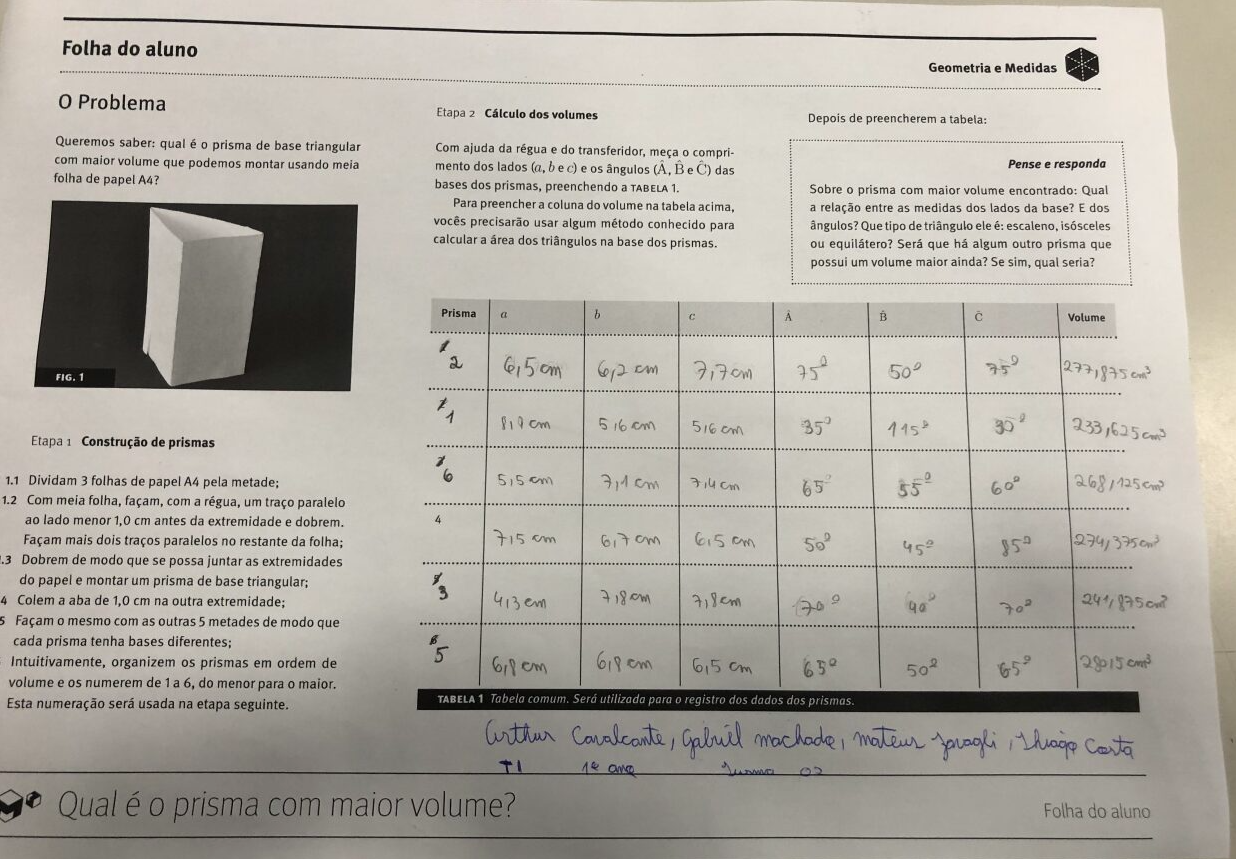 Folha do aluno
Geometria e Medidas
O Problema
Queremos saber: qual é o prisma de base triangular
com maior volume que podemos montar usando meia
folha de papel A4?
FIG. 1
Etapa 1 Construção de prismas
1.1 Dividam 3 folhas de papel A4 pela metade;
1.2 Com meia folha, façam, com a régua, um traço paralelo
ao lado menor 1,0 cm antes da extremidade e dobrem.
Façam mais dois traços paralelos no restante da folha;
.3 Dobrem de modo que se possa juntar as extremidades
do papel e montar um prisma de base triangular;
4 Colem a aba de 1,0 cm na outra extremidade;
5 Façam o mesmo com as outras 5 metades de modo que
cada prisma tenha bases diferentes;
Intuitivamente, organizem os prismas em ordem de
volume e os numerem de 1 a 6, do menor para o maior.
Esta numeração será usada na etapa seguinte.
Etapa 2 Cálculo dos volumes
Com ajuda da régua e do transferidor, meça o compri-
mento dos lados (a, b e c) e os ângulos (Â, B̂ e Ĉ) das
bases dos prismas, preenchendo a TABELA 1.
Para preencher a coluna do volume na tabela acima,
vocês precisarão usar algum método conhecido para
calcular a área dos triângulos na base dos prismas.
Depois de preencherem a tabela:
Pense e responda
Sobre o prisma com maior volume encontrado: Qual
a relação entre as medidas dos lados da base? E dos
ângulos? Que tipo de triângulo ele é: escaleno, isósceles
ou equilátero? Será que há algum outro prisma que
possui um volume maior ainda? Se sim, qual seria?
Prisma a b c Â B̂ Ĉ Volume
2 6,5 cm 6,2 cm 7,7 cm 75º 50º 75º 277,875 cm³
1 8,9 cm 5,6 cm 5,6 cm 35º 115º 30º 233,625 cm³
6 5,5 cm 7,1 cm 7,4 cm 65º 55º 60º 268,125 cm³
4 7,5 cm 6,7 cm 6,5 cm 50º 45º 85º 274,375 cm³
3 4,3 cm 7,8 cm 7,8 cm 70º 40º 70º 241,875 cm³
5 6,8 cm 6,8 cm 6,5 cm 65º 50º 65º 280,5 cm³
TABELA 1 Tabela comum. Será utilizada para o registro dos dados dos prismas.
Arthur Cavalcante, Gabriel machado, mateus , Thiago Costa
TI 1º ano Turma 02
Qual é o prisma com maior volume?
Folha do aluno